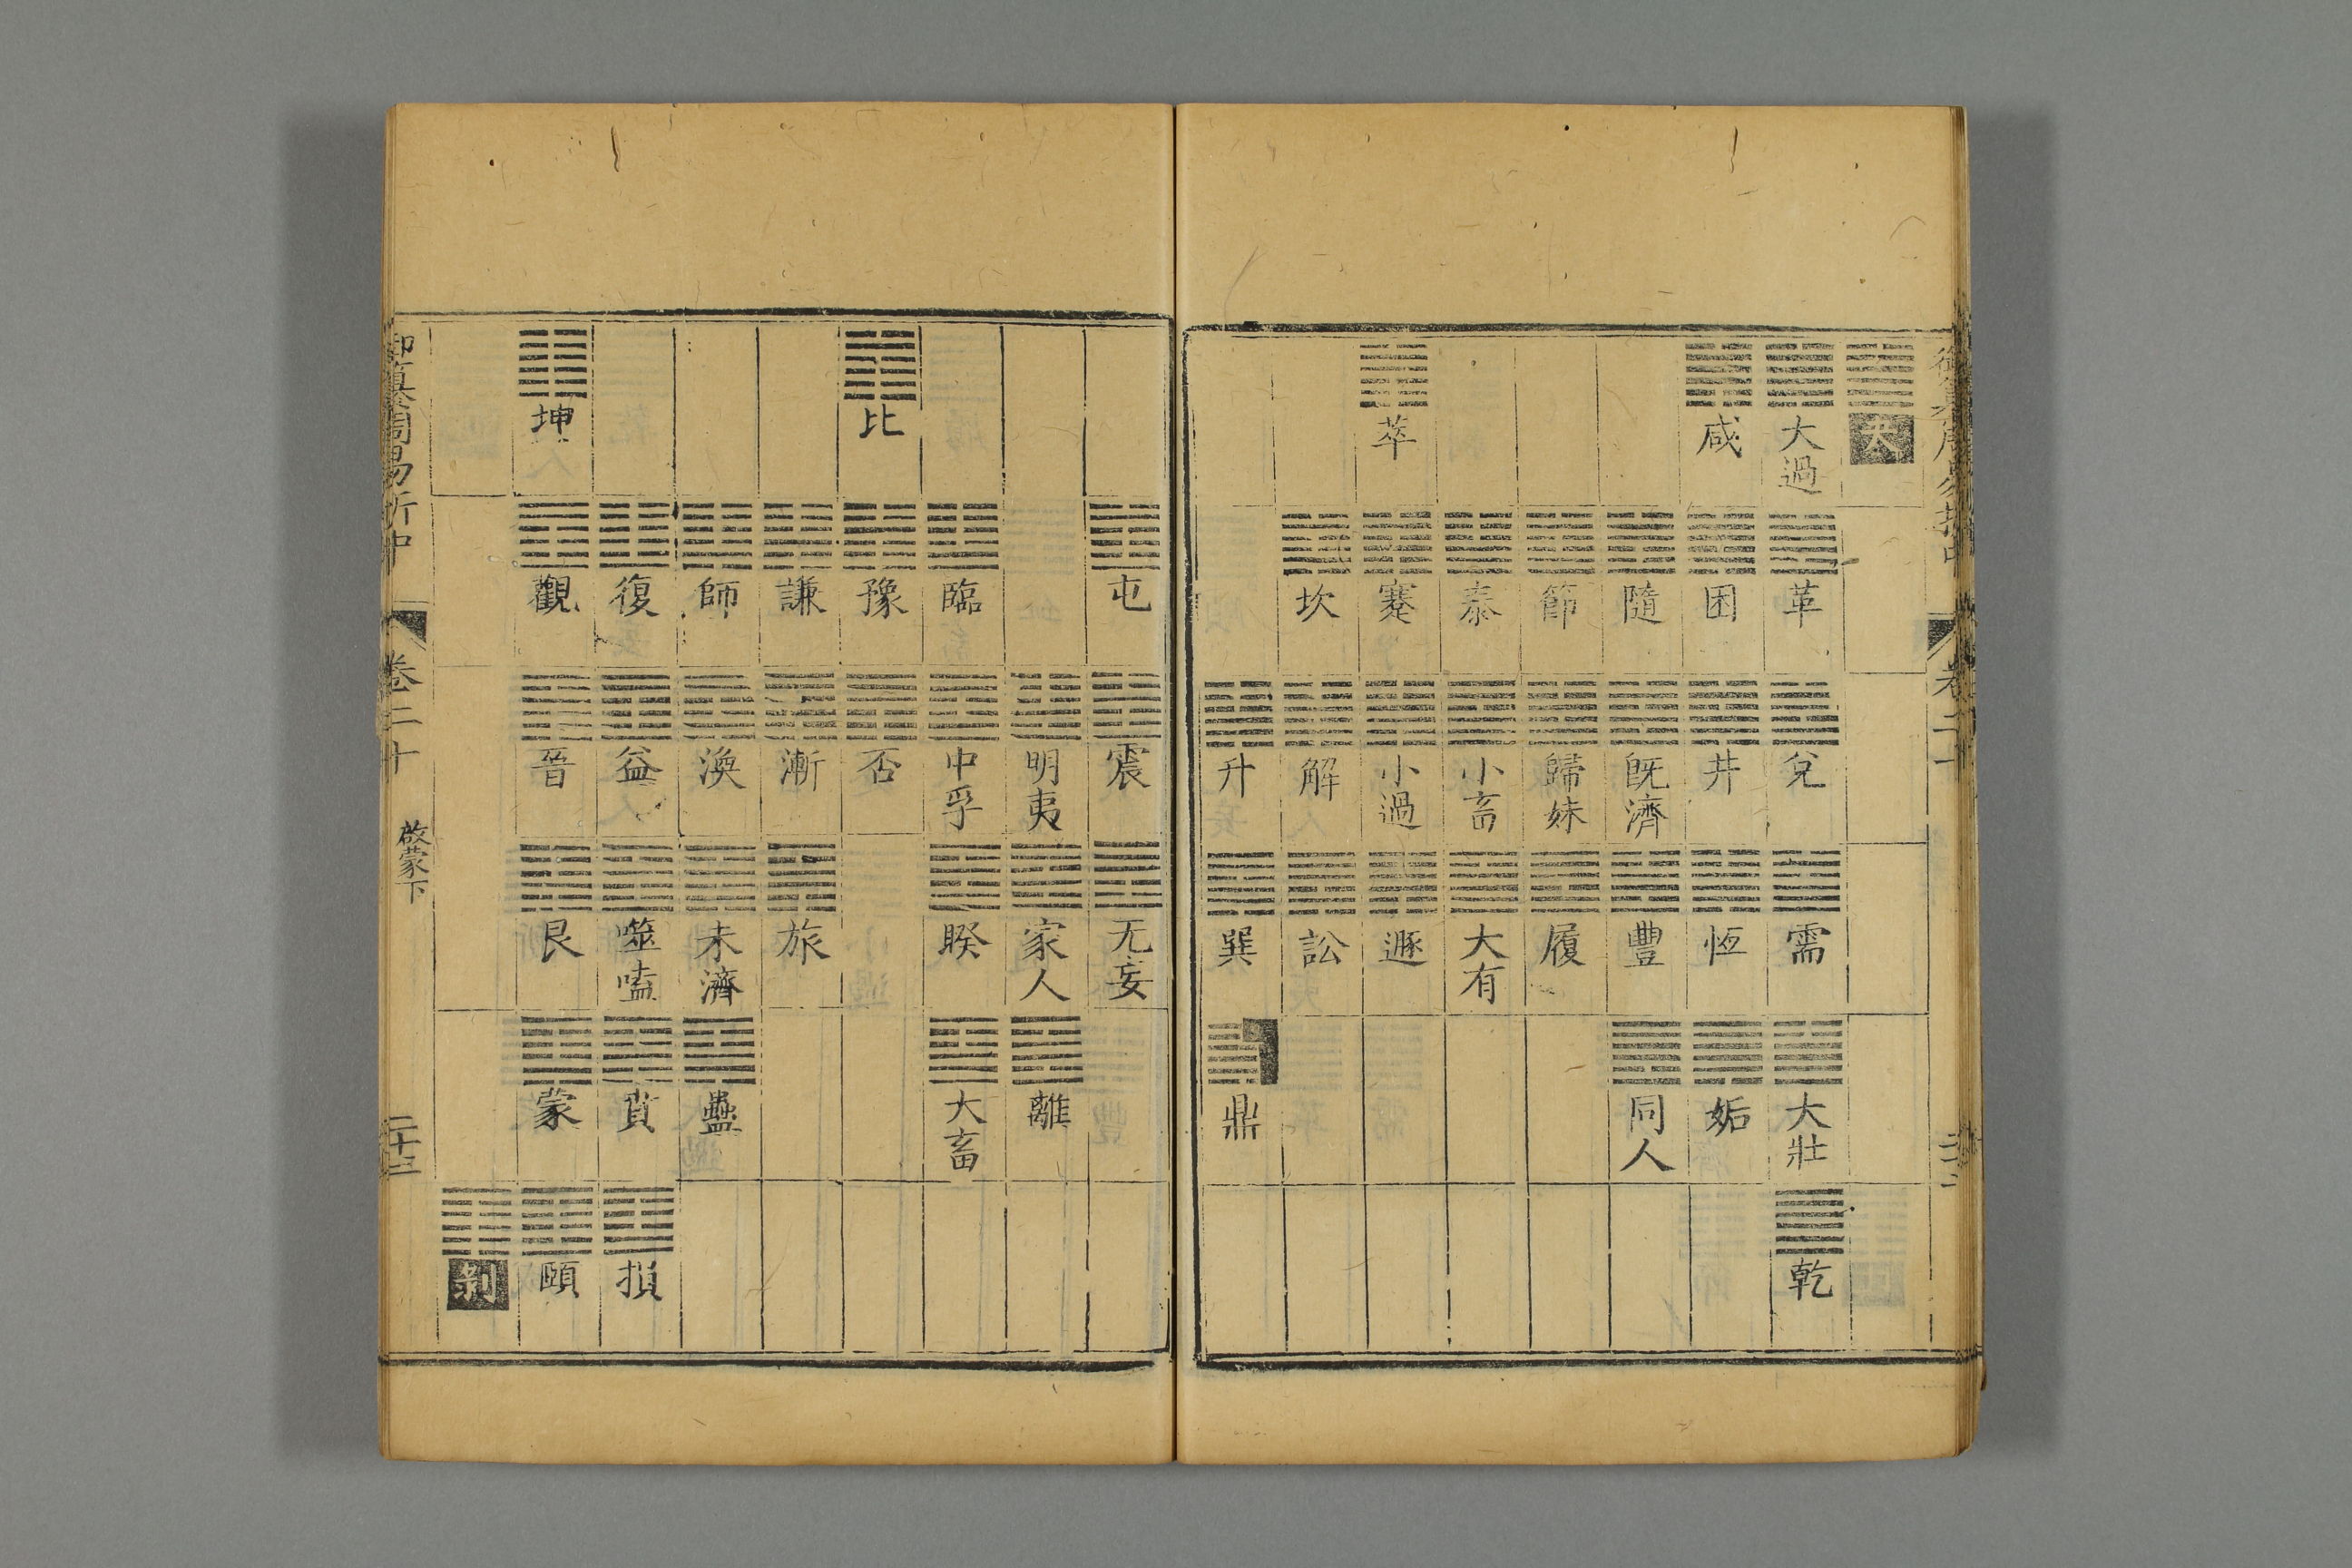 夬
大過 革 兌 需 大壯 乾
咸 困 井 恆 姤
隨 既濟 豐 同人
節 歸妹 履
泰 小畜 大有
萃 蹇 小過 遯
坎 解 訟
升 巽 鼎
屯 震 无妄
明夷 家人 離
臨 中孚 睽 大畜
比 豫 否
謙 漸 旅
師 渙 未濟 蠱
復 益 噬嗑 賁 損
坤 觀 晉 艮 蒙 頤
剝
御纂周易折中 卷二十 啟蒙下 二十三